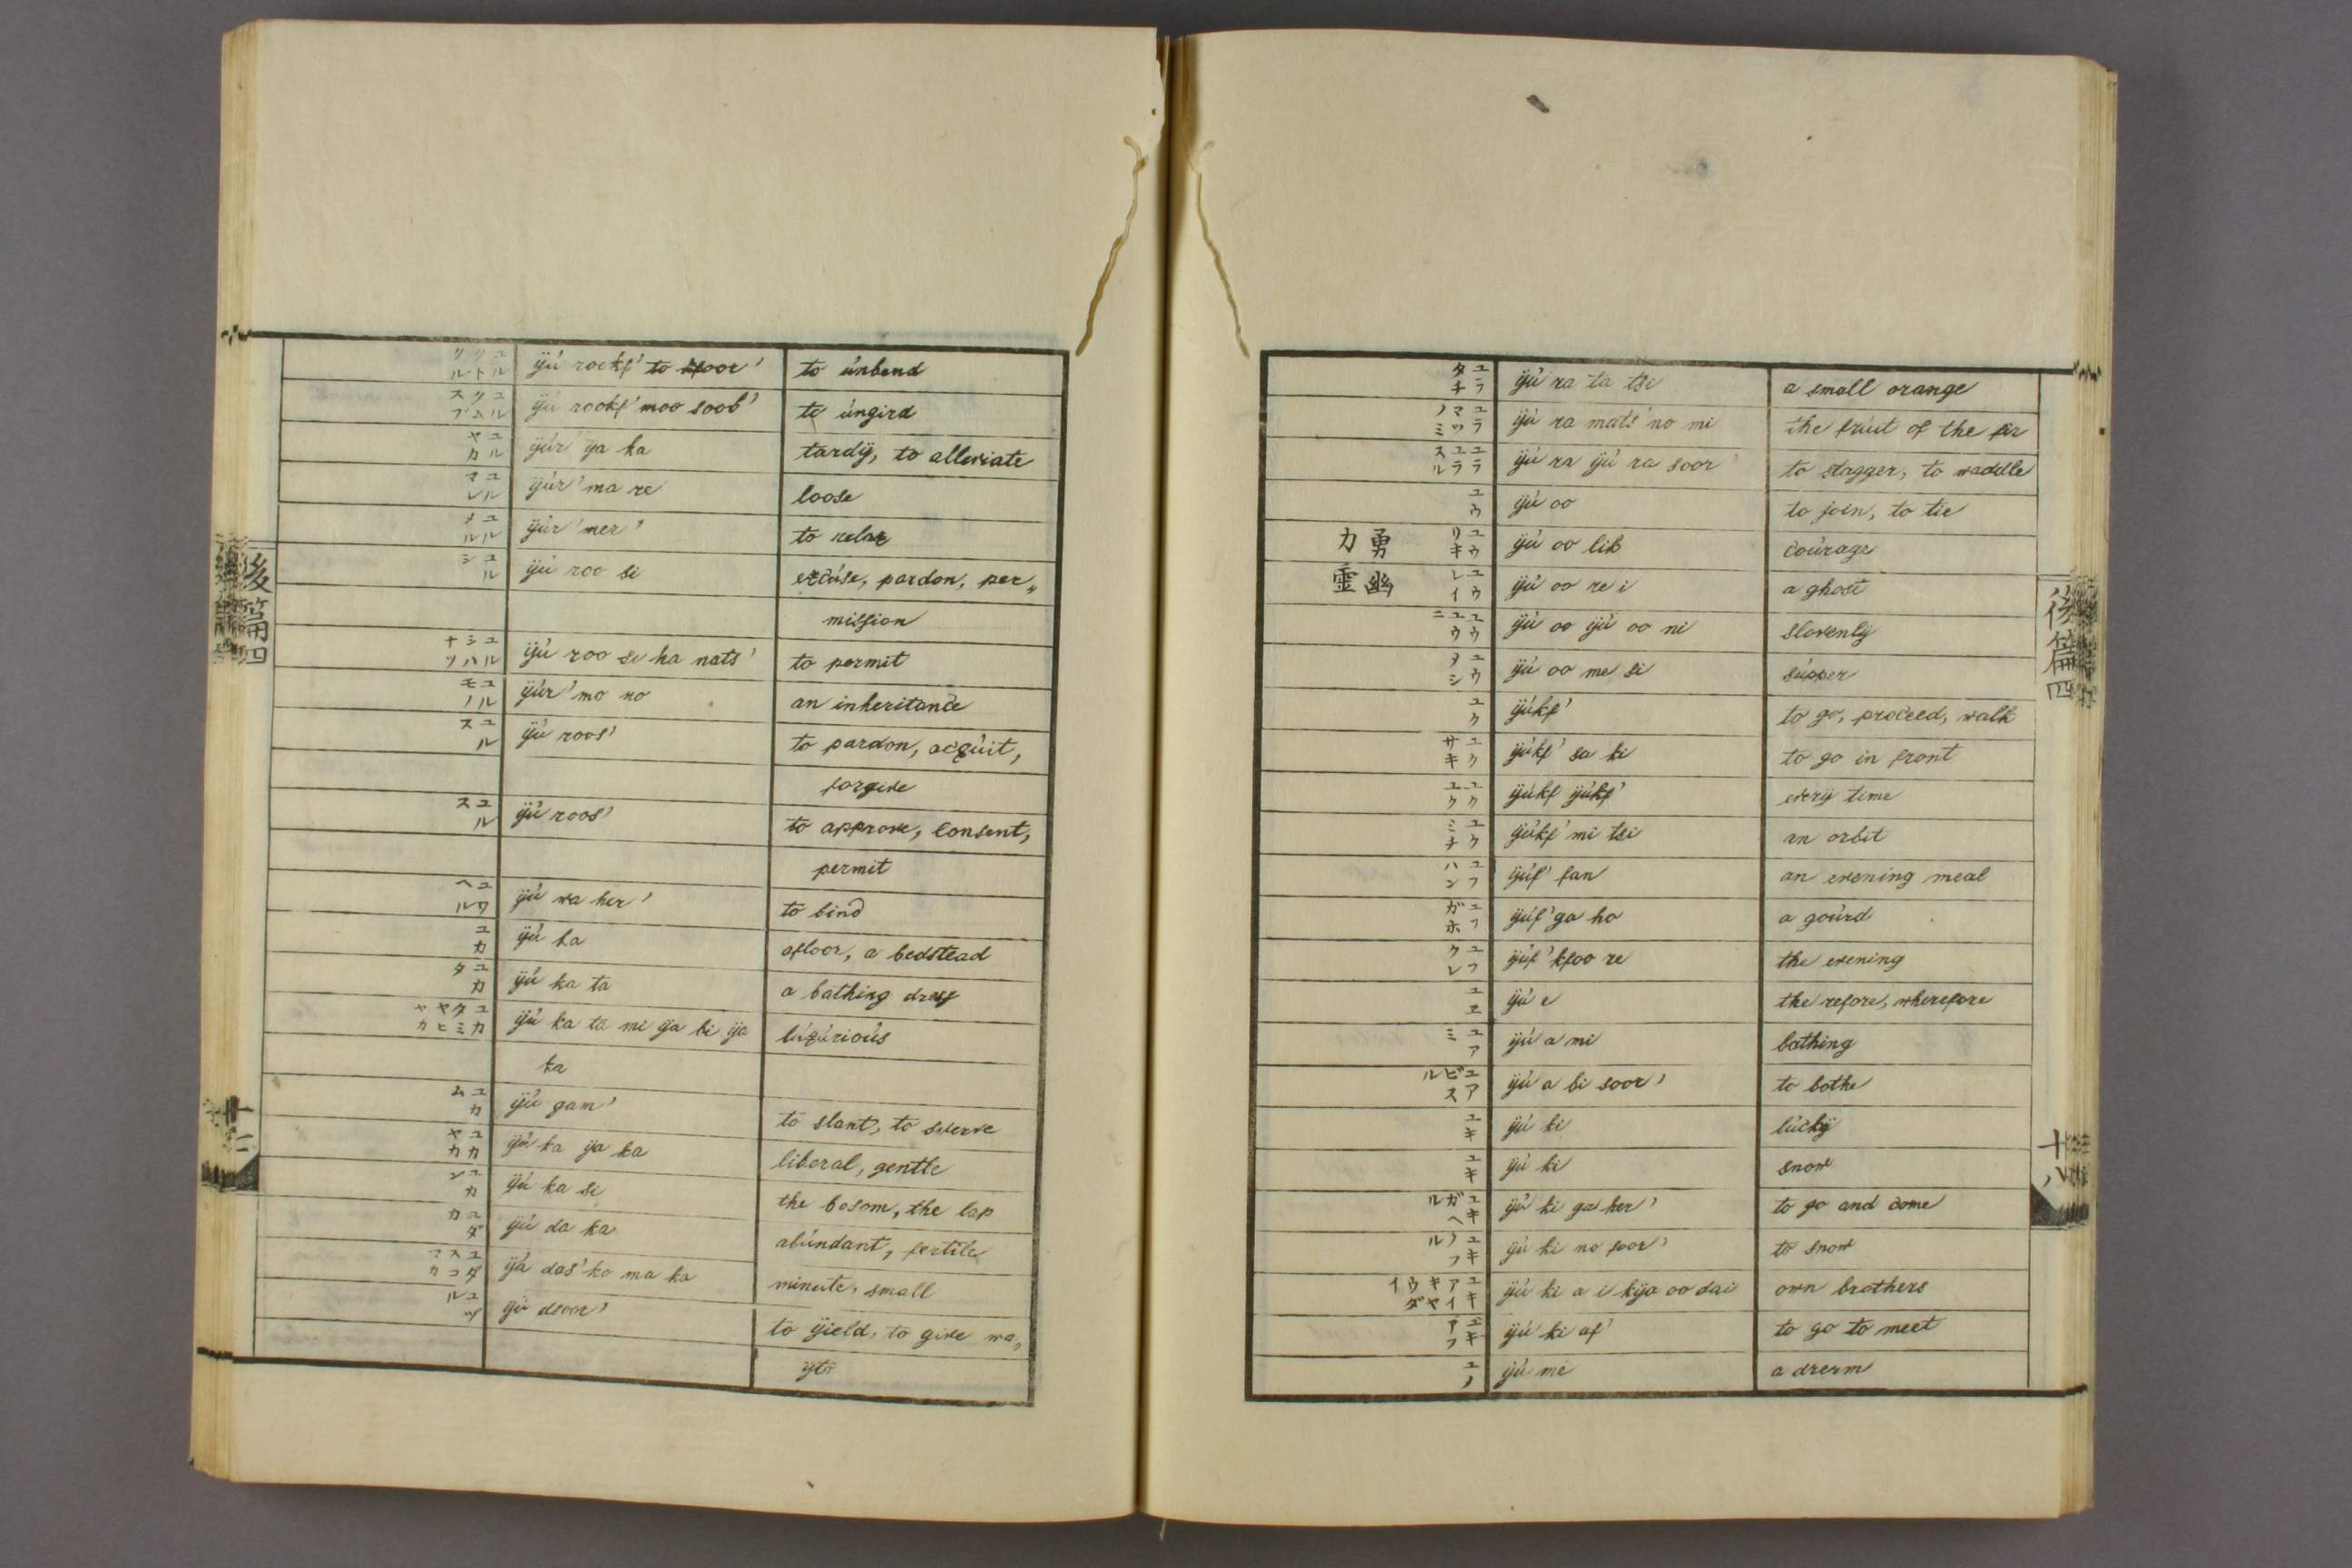 ユルクトリル ÿú rookf' to foor' to únbend
ユルクムスブ ÿú rookf' moo soob' to úngird
ユルヤカ ÿúr' ÿa ka tardÿ, to alleviate
ユルマレ ÿúr' ma re loose
ユルメル ÿúr' mer' to relax
ユルシ ÿú roo si excúse, pardon, per„
mission
ユルシハナツ ÿú roo si ha nats' to permit
ユルモノ ÿúr' mo no an inheritance
ユルス ÿú roos' to pardon, acqúit,
forgive
ユルス ÿú roos' to approve, Consent,
permit
ユワヘル ÿú wa her' to bind
ユカ ÿú ka afloor, a bedstead
ユカタ ÿú ka ta a bathing dress
ユカタミヤヒヤカ ÿú ka ta mi ÿa bi ÿa lúxúrioús
ka
ユカム ÿú gam' to slant, to swerve
ユカヤカ ÿú ka ÿa ka liberal, gentle
ユカシ ÿú ka si the bosom, the lap
ユダカ ÿú da ka abúndant, fertile
ユダスコマカ ÿú das' ko ma ka minúte, small
ユヅル ÿú dsoor' to ÿield, to give wa„
ÿto
後篇四
ユラタチ ÿú ra ta tsi a small orange
ユラマツノミ ÿú ra mats' no mi the frúit of the fir
ユラユラスル ÿú ra ÿú ra soor' to stagger, to waddle
ユウ ÿú oo to join, to tie
勇力 ユウリキ ÿú oo lik coúrage
幽霊 ユウレイ ÿú oo re i a ghost
ユウユウニ ÿú oo ÿú oo ni slovenlÿ
ユウメシ ÿú oo me si súpper
ユク ÿúkf' to go, proceed, walk
ユクサキ ÿúkf' sa ki to go in front
ユクユク ÿúkf ÿúkf' everÿ time
ユクミチ ÿúkf' mi tsi an orbit
ユフハン ÿúf' fan an evening meal
ユフガホ ÿúf' ga ho a goúrd
ユフクレ ÿúf' kfoo re the evening
ユヱ ÿú e the refore, wherefore
ユアミ ÿú a mi bathing
ユアビスル ÿú a bi soor' to bathe
ユキ ÿú ki lúckÿ
ユキ ÿú ki snow
ユキガヘル ÿú ki ga her' to go and come
ユキノフル ÿú ki no foor' to snow
ユキアイキヤウダイ ÿú ki a i kÿa oo dai own brothers
ユキアフ ÿú ki af' to go to meet
ユメ ÿú me a dream
後篇四
十八